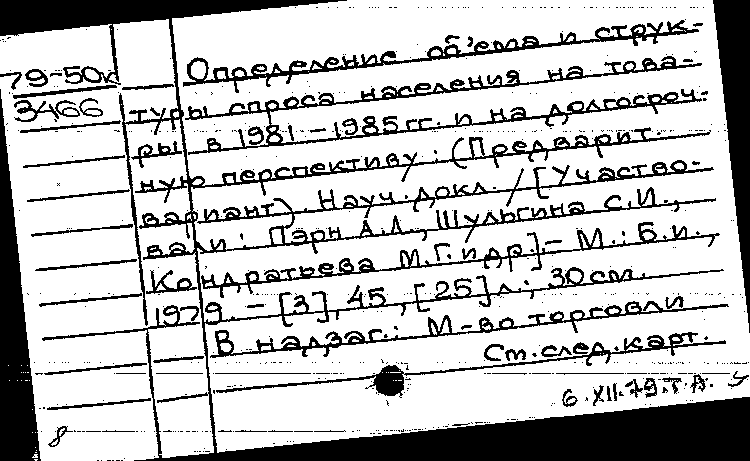 79-50к
3466
Определение об'ема и струк-
туры спроса населения на това-
ры в 1981-1985 гг. и на долгосроч-
ную перспективу: (Предварит.
вариант). Науч. докл. / [Участво-
вали: Пэрн А.Л., Шульгина С.И.,
Кондратьева М.Г. и др.] - М.: Б.и.,
1979. - [3], 45, [25] л.; 30 см.
В надзаг.: М-во торговли
См. след. карт.
6.XII.79.Т.А.
8